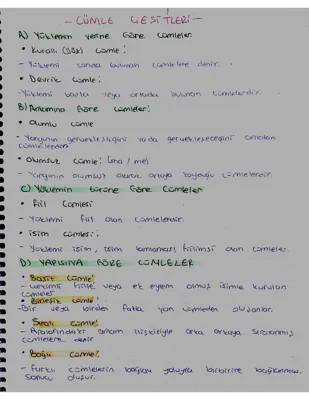 - CÜMLE ÇEŞİTLERİ -
A) Yüklemin yerine Göre Cümleler
• Kurallı (Düz) Cümle:
- Yüklemi sonda bulunan cümlelere denir.
• Devrik Cümle:
-Yüklemi başta veya ortada bulunan cümlelerdir.
B) Anlamına Göre Cümleler:
• Olumlu Cümle
- Yargının gerçekleştiğini ya da gerçekleşeceğini anlatan
cümlelerdir
• Olumsuz Cümle: (ma / me)
- Yargının olumsuz olarak ortaya koyduğu cümlelerdir.
C) Yüklemin türüne Göre Cümleler
• Fiil Cümlesi
- Yüklemi fiil olan cümlelerdir.
• İsim Cümlesi:
- Yüklemi isim, isim tamlaması, fiilimsi olan cümleler.
D) YAPISINA GÖRE CÜMLELER
• Basit Cümle:
- fiille veya ek eylem almış isimle kurulan
cümleler
• Birleşik Cümle:
-Bir veya birden fazla yan cümleden oluşanlar.
• Sıralı Cümle:
- Aralarındaki anlam ilişkisiyle art arda sıralanmış
cümlelere denir
• Bağlı Cümle:
- Farklı cümlelerin bağlaç yoluyla birbirine bağlanması
sonucu oluşur.